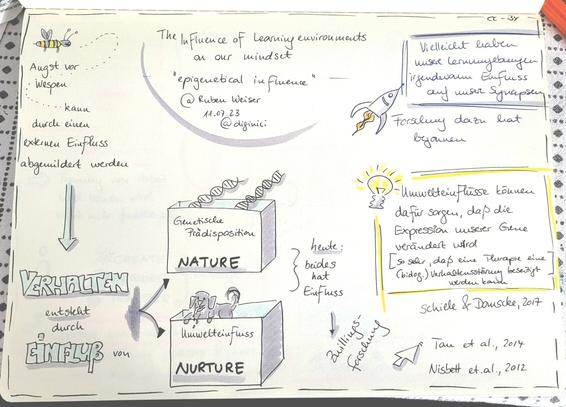 cc - by
The Influence of Learning environments
on our mindset
"epigenetical influence"
@ Ruben Weiser
11.07.23
@diginici
Angst vor
Wespen
kann
durch einen
externen Einfluss
abgemildert werden
Vielleicht haben
unsere Lernumgebungen
irgendwann Einfluss
auf unsere Synapsen
Forschung dazu hat
begonnen
Umwelteinflüsse können
dafür sorgen, daß die
Expression unserer Gene
verändert wird
[so sehr, daß eine Therapie eine
(biolog.) Verhaltensstörung beseitigt
werden kann
Schiele & Domschke, 2017
VERHALTEN
entsteht
durch
EINFLUß von
Genetische
Prädisposition
NATURE
Umwelteinfluss
NURTURE
heute:
beides
hat
Einfluss
Zwillings-
forschung
Tan et al., 2014
Nisbett et. al., 2012